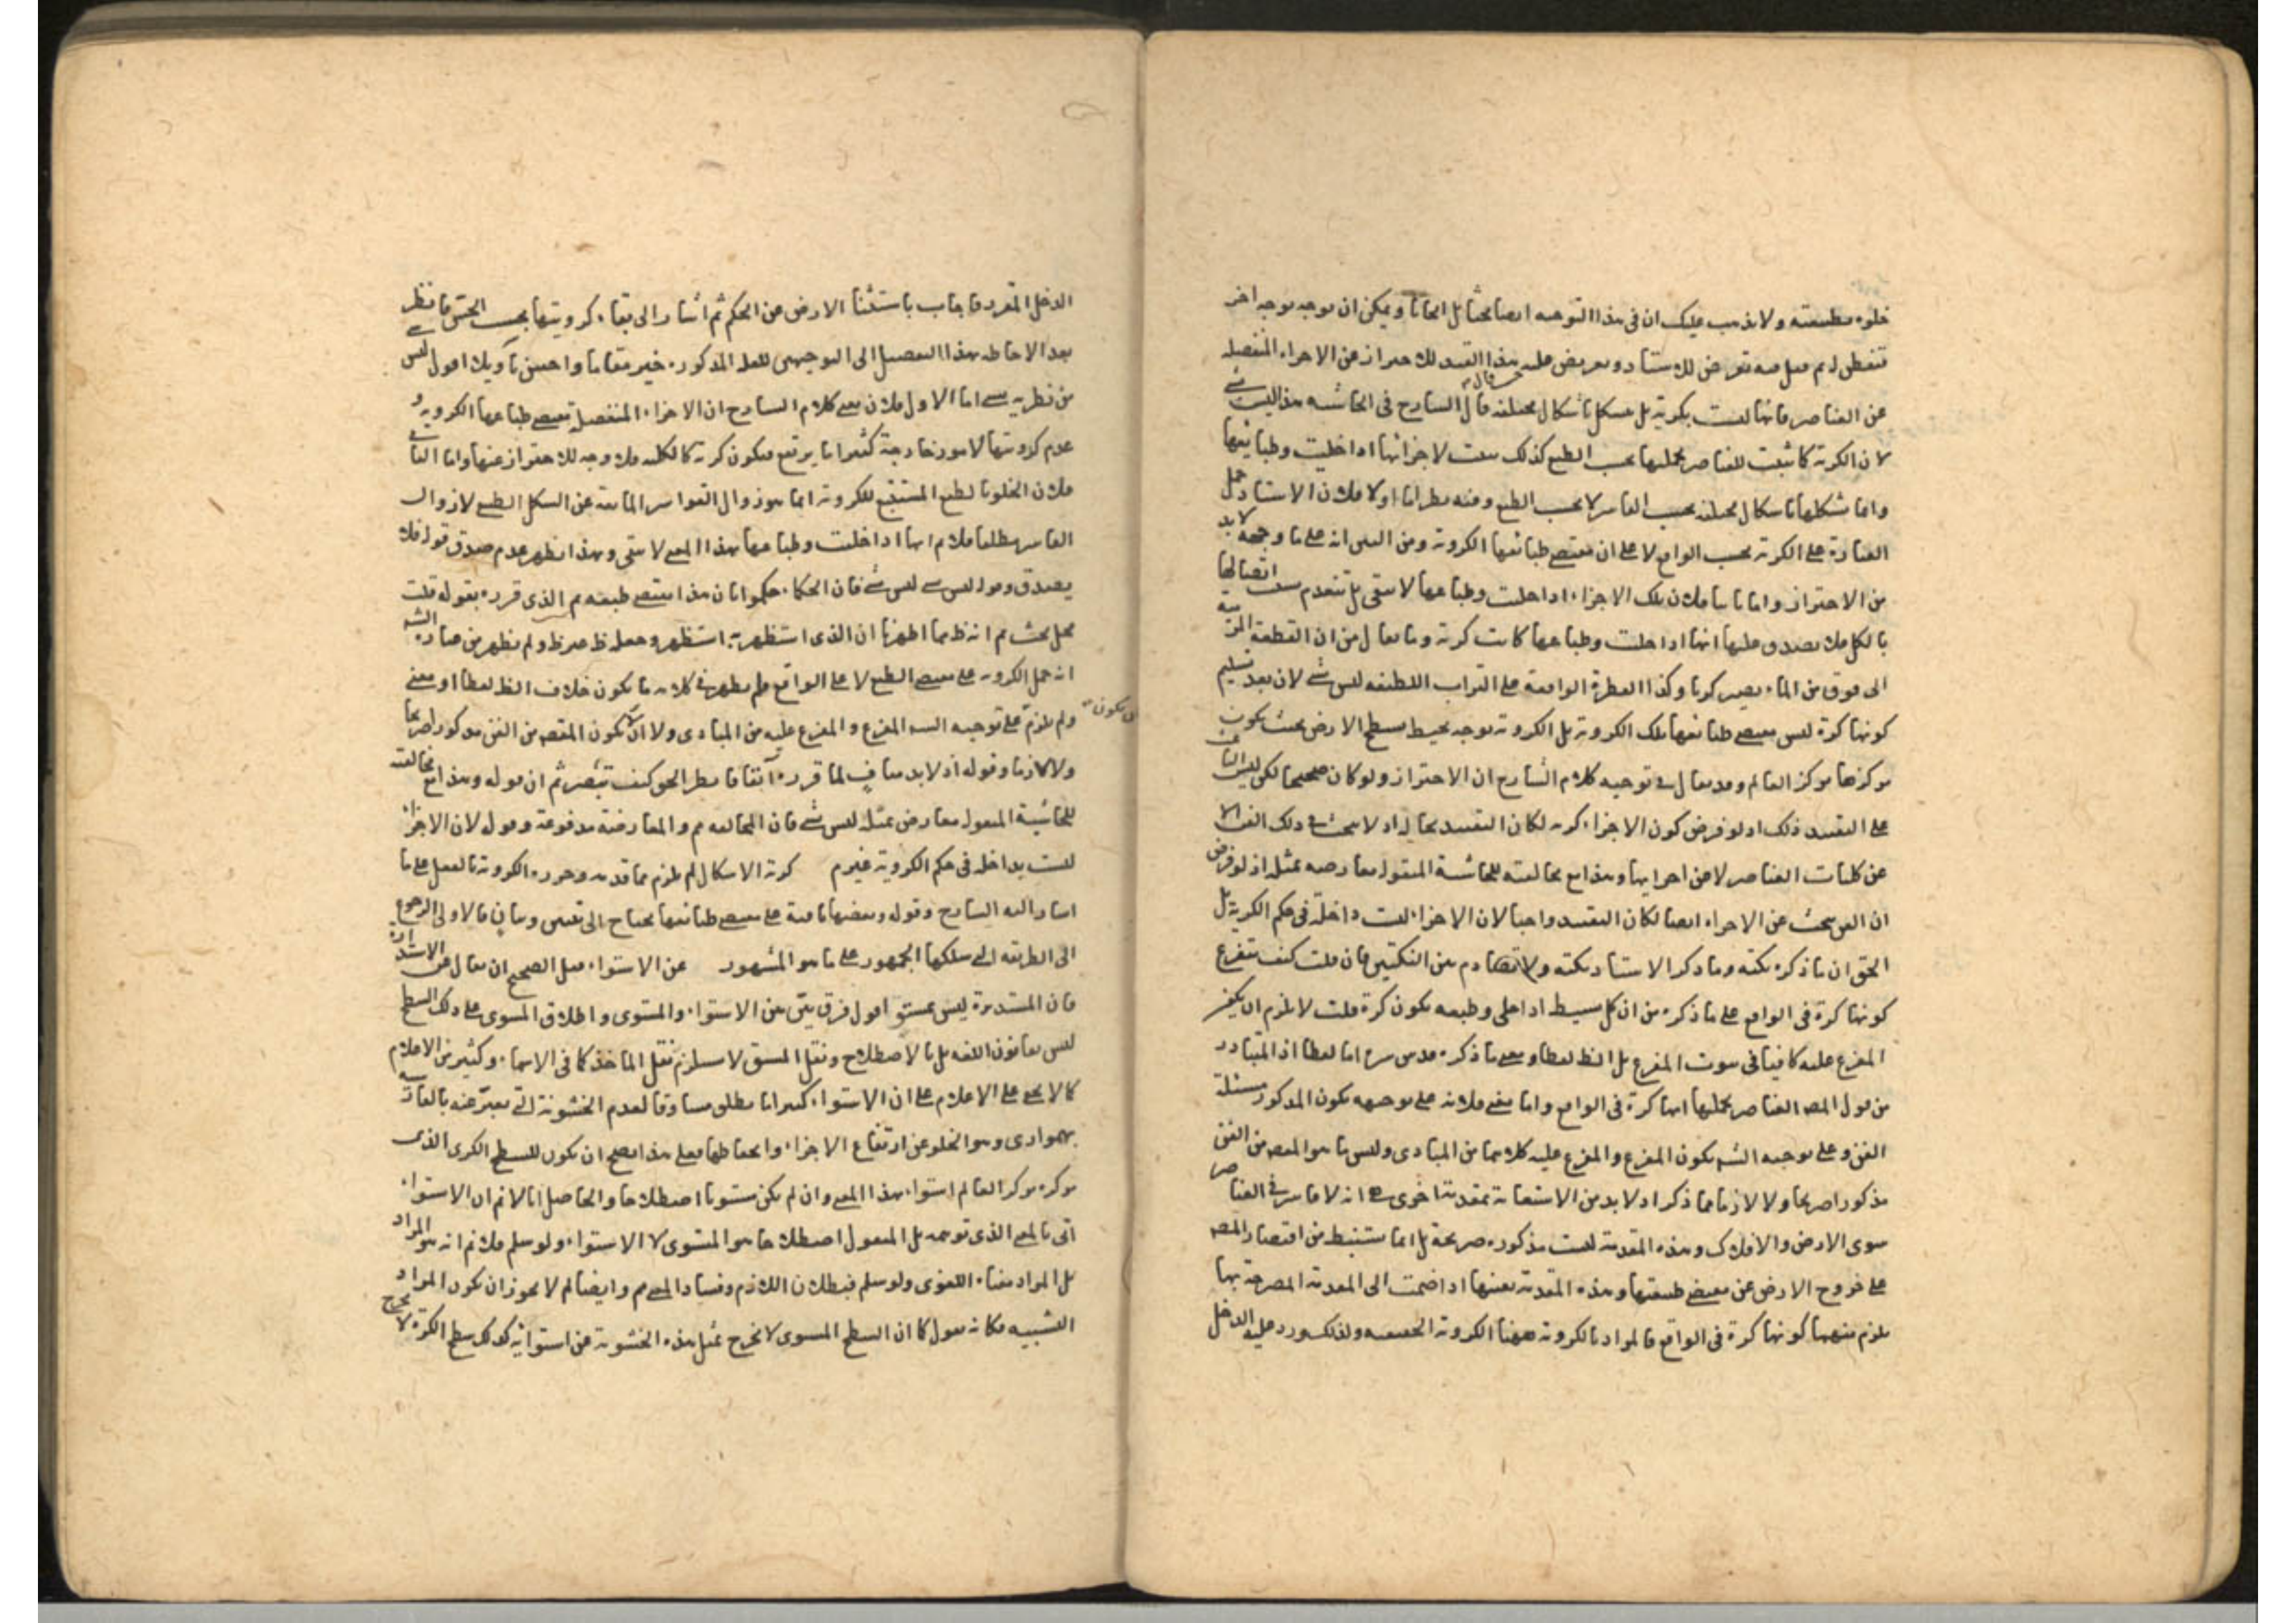 خلوه بطبيعته ولا يذهب عليك ان في هذا التوجيه ايضا بحثا بل ابحاثا ويمكن ان يوجه بوجه اخر
تتفطن له ثم قيل فيه تعريض للاستاد وتعريض عليه هذا القيد للاحتراز عن الاجزاء المنفصلة
عن العناصر فانها ليست بكرية بل مشكل باشكال مختلفة قال الشارح في الحاشية هذا ليس بشئ
لان الكرية كما ثبتت للعناصر بجملتها بحسب الطبع كذلك ثبتت لاجزائها اذا خليت وطبائعها
وانما شكلها باشكال مختلفة بحسب القاسر لا بحسب الطبع وفيه نظر اما اولا فلان الاستاد حمل
العبارة على الكرية بحسب الواقع لا على ان مقتضى طبائعها الكروية ومن البين انه على ما وجهه لا بد
من الاحتراز واما ثانيا فلان تلك الاجزاء اذا خليت وطباعها لا تبقى بل تنعدم بسبب اتصالها
بالكل فلا يصدق عليها انها اذا خليت وطباعها كانت كرية وما يقال من ان القطعة المرمية
الى فوق من الماء يصير كريا وكذا القطرة الواقعة على التراب اللطيفة ليس بشئ لان بعد تسليم
كونها كرة ليس مقتضى طبائعها تلك الكروية بل الكروية بوجه يحيط بسطح الارض بحيث يكون
مركزها مركز العالم وقد يقال في توجيه كلام الشارح ان الاحتراز ولو كان صحيحا لكن ليس الباعث
على التقييد ذلك اذ لو فرض كون الاجزاء كرية لكان التقييد بحاله اذ لا يبحث في ذلك الفن الا
عن كليات العناصر لا عن اجزائها وهذا مع مخالفته للحاشية المنقولة معارضة بمثله اذ لو فرض
ان الفن يبحث عن الاجزاء ايضا لكان التقييد واجبا لان الاجزاء ليست داخلة في حكم الكرية بل
الحق ان ما ذكره نكتة وما ذكر الاستاد نكتة ولا تصادم بين النكتتين فان قلت كيف يتفرع
كونها كرة في الواقع على ما ذكره من ان كل بسيط اذا خلي وطبعه يكون كرة قلت لا يلزم ان يكون
المفرع عليه كافيا في ثبوت المفرع بل الظ لفظا ومعنى ما ذكره قدس سره اما لفظا اذ المتبادر
من قول المصه العناصر بجملتها انها كرة في الواقع واما معنى فلانه على توجيهه يكون المذكور مسئلة
الفن وعلى توجيه الشه يكون المفرع والمفرع عليه كلاهما من المبادي وليس ما هو المقصه من الفن
مذكورا صريحا ولا لازما مما ذكر اذ لا بد من الاستعانة بمقدمة اخرى هي انه لا قاسر في العناصر
سوى الارض والافلاك وهذه المقدمة ليست مذكورة صريحة بل انما تستنبط من اقتصار المصه
على خروج الارض عن مقتضى طبيعتها وهذه المقدمة بعينها اذا ضمت الى المقدمة المصرحة بها
يلزم منهما كونها كرة في الواقع فالمراد بالكروية ههنا الكروية الحقيقية ولذلك ورد عليه الدخل
الدخل المقدر فاجاب باستثنا الارض عن الحكم ثم اشار الى بقاء كرويتها بحسب الحس فانظر
بعد الاحاطة بهذا التفصيل الى التوجيهين للعلة المذكورة خير مقاما واحسن تأويلا اقول ليس
من نظريه بشئ اما الاول فلان معنى كلام الشارح ان الاجزاء المنفصلة تقتضي طباعها الكروية و
عدم كرويتها لامور خارجة كثيرا ما يرتفع فيكون كرية كالكلية فلا وجه للاحتراز عنها واما الثاني
فلان الخلو بالطبع المستتبع للكروية انما هو زوال القواسر المانعة عن الشكل الطبيعي لا زوال
القاسر مطلقا فلا ثم انها اذا خليت وطباعها بهذا المعنى لا تبقى وبهذا يظهر عدم صدق قوله فلا
يصدق وقوله ليس بشئ ليس بشئ فان الحكماء حكموا بان هذا مقتضى طبيعة ثم الذي قرره بقوله قلت
محل بحث ثم انه ظ مما اظهرنا ان الذي استظهر به استظهر وجعله ظ غير ظ ولم يظهر من عبارة الشه
انه حمل الكروية على مقتضى الطبع لا على الواقع ولم يظهر في كلامه ما يكون خلاف الظ لفظا او معنى
ان يكون
ولم يلزم على توجيه الشه المفرع والمفرع عليه من المبادي ولا ان لا يكون المقصه من الفن مذكورا صريحا
ولا لازما وقوله اذ لا بد مناف لما قرره آنفا فانظر الحق كيف تبصر ثم ان قوله وهذا مع مخالفته
للحاشية المنقول معارض بمثله ليس بشئ فان المخالفة مم والمعارضة مدفوعة وقوله لان الاجزاء
ليست بداخلة في حكم الكروية غير مم كرية الاشكال لم يلزم مما قدمه وحرره الكروية بالفعل على ما
اشار اليه الشارح وقوله وبعضها باقية على مقتضى طبائعها يحتاج الى تعيين وبيان فالاولى الرجوع
الى الطريقة التي سلكها الجمهور على ما هو المشهور عن الاستواء قيل الصحيح ان يقال عن الاستدارة
فان المستديرة ليس بمستو اقول فرق بين الاستواء والمستوي واطلاق المستوي على ذلك السطح
ليس بقانون اللغة بل بالاصطلاح ونقل المشتق لا يستلزم نقل الماخذ كما في الاسماء وكثير من الاعلام
كما لا يخفى على الاعلام على ان الاستواء كثيرا ما يطلق مساوقا لعدم الخشونة التي يعبر عنه بالفارسية
بهمواري وهو الخلو عن ارتفاع الاجزاء وانخفاضها فعلى هذا يصح ان يكون للسطح الكري الذي
مركزه مركز العالم استواء بهذا المعنى وان لم يكن مستويا اصطلاحا والحاصل انا لا نم ان الاستواء
اتى بالمعنى الذي توهمه بل المنقول اصطلاحا هو المستوي لا الاستواء ولو سلم فلا نم انه هو المراد
بل المراد معناه اللغوي ولو سلم فبطلان اللازم وفساد المعنى مم وايضا لم لا يجوز ان يكون المراد
التشبيه فكانه يقول كما ان السطح المستوي لا يخرج بمثل هذه الخشونة عن استوائه كذلك سطح الكرة لا يخرج